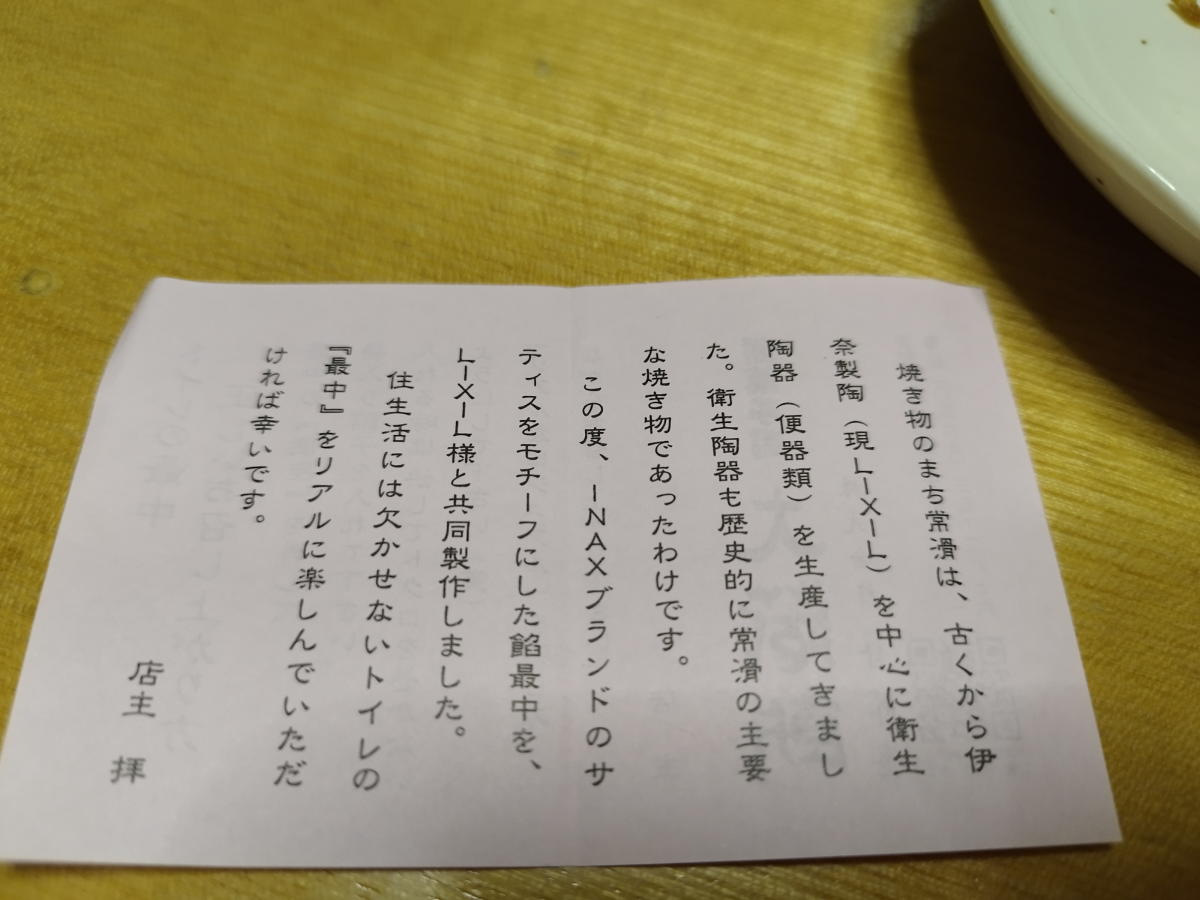 焼き物のまち常滑は、古くから伊
奈製陶（現LIXIL）を中心に衛生
陶器（便器類）を生産してきまし
た。衛生陶器も歴史的に常滑の主要
な焼き物であったわけです。
この度、INAXブランドのサ
ティスをモチーフにした餡最中を、
LIXIL様と共同製作しました。
住生活には欠かせないトイレの
『最中』をリアルに楽しんでいただ
ければ幸いです。
店主 拝